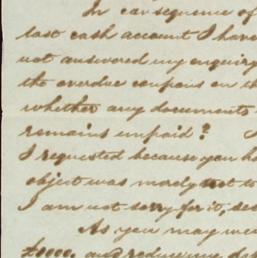 In consequence of
last cash account I have
not answered my enquiry
the overdue coupons on th
whether any documents
remains unpaid?
I requested because you ha
object was merely not to
I am not sorry for it, se
As you may we
£1000, and reduce my de